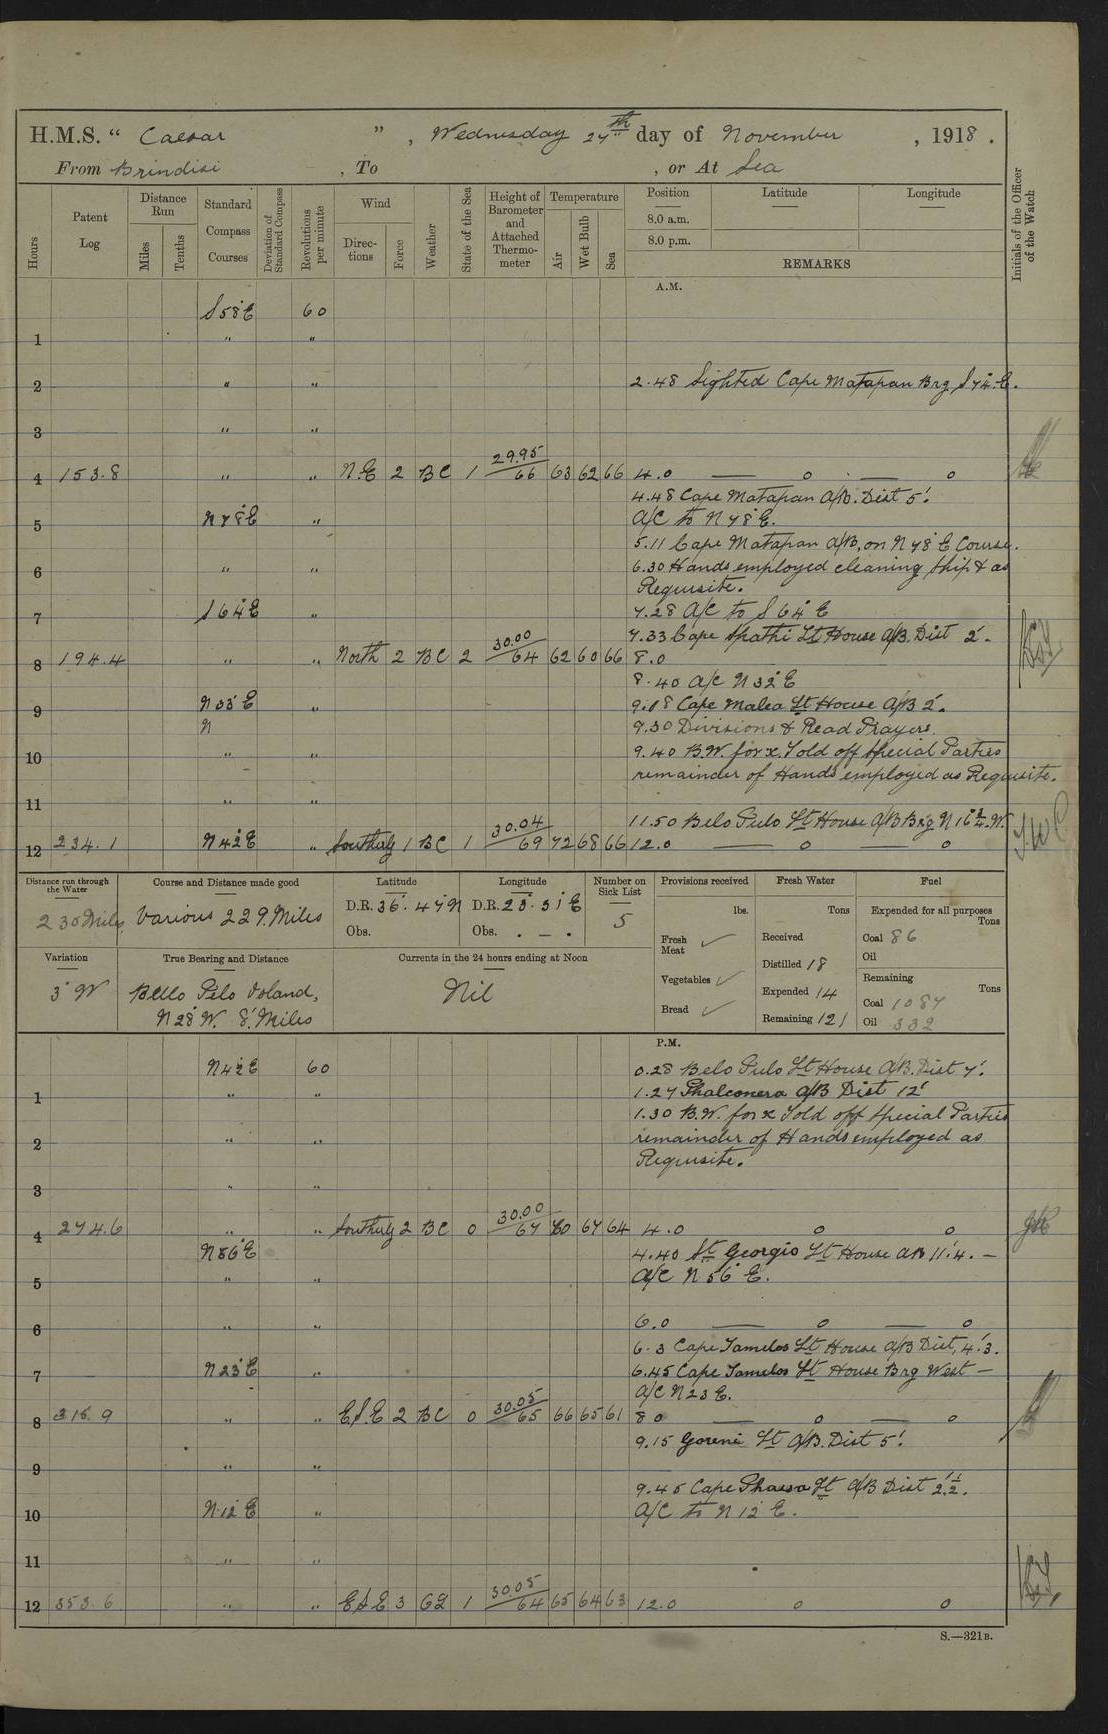 H.M.S. “ Caesar ” , Wednesday 27th day of November , 1918 .
From Brindisi , To , or At Sea
Hours
Patent Log
Distance Run
Miles
Tenths
Standard Compass Courses
Deviation of Standard Compass
Revolutions per minute
Wind
Direc-tions
Force
Weather
State of the Sea
Height of Barometer and Attached Thermo-meter
Temperature
Air
Wet Bulb
Sea
Position
Latitude
Longitude
8.0 a.m.
8.0 p.m.
REMARKS
Initials of the Officer of the Watch
A.M.
S 58° E 60
1 " "
2 " " 2.48 Sighted Cape Matapan Brg S 74° E.
3 " "
4 153.8 " " N.E 2 BC 1 29.95/66 63 62 66 4.0 — o — o
4.48 Cape Matapan A/B. Dist 5'.
5 N 78° E " A/C to N 78° E.
5.11 Cape Matapan A/B, on N 78° E Course.
6 " " 6.30 Hands employed cleaning ship & as
Requisite.
7 S 64° E " 7.28 A/C to S 64° E
7.33 Cape Spathi Lt House A/B. Dist 2'.
8 194.4 " " North 2 BC 2 30.00/64 62 60 66 8.0
8.40 A/C N 32° E
9 N 33° E " 9.18 Cape Malea Lt House A/B 2'.
N 9.30 Divisions & Read Prayers.
10 " " 9.40 B.W. for x. Told off Special Parties
remainder of Hands employed as Requisite.
11 " "
11.50 Belo Pulo Lt House A/B Brg N 16° W.
12 234.1 N 42° E " Southerly 1 BC 1 30.04/69 72 68 66 12.0 — o — o
Distance run through the Water
Course and Distance made good
Latitude
Longitude
Number on Sick List
Provisions received
Fresh Water
Fuel
230 Miles Various 229. Miles
D.R. 36° 47' N D.R. 23° 31' E
Obs. Obs. . — .
5
lbs.
Tons
Expended for all purposes
Tons
Fresh Meat ✓
Received
Coal 86
Oil
Distilled 18
Variation
True Bearing and Distance
Currents in the 24 hours ending at Noon
Vegetables ✓
Expended 14
Remaining
Tons
3° W Bello Pilo Island,
N 28° W. 8' Miles
Nil
Bread ✓
Remaining 121
Coal 1087
Oil 332
P.M.
N 42° E 60 0.28 Belo Pulo Lt House A/B. Dist 7'.
1 " " 1.27 Phalconera A/B Dist 12'
1.30 B.W. for x Told off Special Parties
2 " " remainder of Hands employed as
Requisite.
3 " "
4 274.6 " " Southerly 2 BC 0 30.00/67 60 67 64 4.0 o o
N 56° E 4.40 St Georgio Lt House A/B 11'.4. —
5 " " A/C N 56° E.
6 " " 6.0 — o — o
6.3 Cape Tamelos Lt House A/B Dist, 4'.3.
7 N 23° E " 6.45 Cape Tamelos Lt House Brg West —
A/C N 23 E.
8 315.9 " " E.S.E 2 BC 0 30.05/65 66 65 61 8 0 — o — o
9.15 Goreni Lt A/B. Dist 5'.
9 " "
9.45 Cape Phassa Lt A/B Dist 2'½.
10 N 12° E " A/C to N 12° E.
11 " "
12 353.6 " " ESE 3 1 30.05/64 65 64 63 12.0 o o
S.—321B.